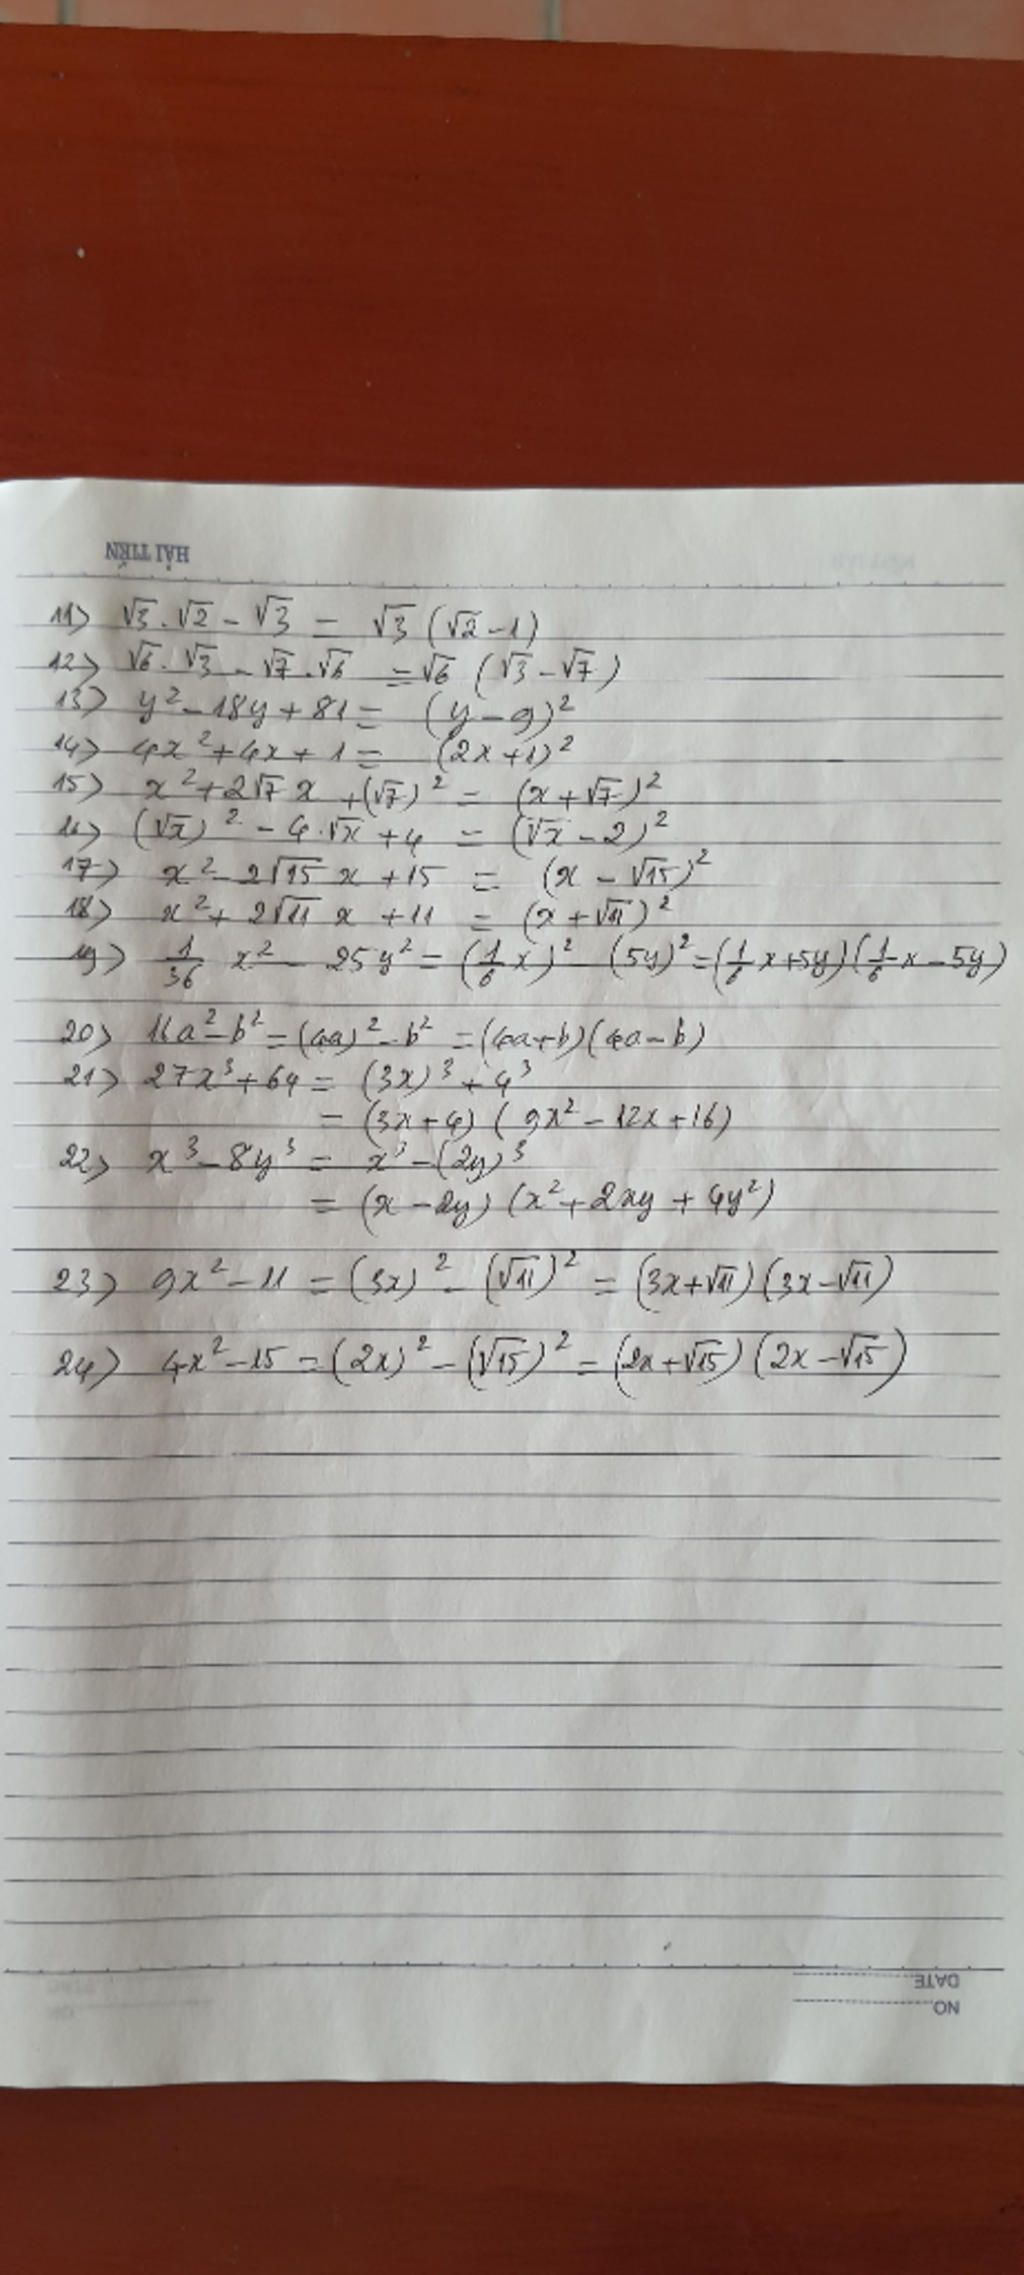 HẢI TIẾN
11) √3.√2 - √3 = √3 (√2 - 1)
12) √6.√3 - √7.√6 = √6 (√3 - √7)
13) y² - 18y + 81 = (y - 9)²
14) 4x² + 4x + 1 = (2x + 1)²
15) x² + 2√7 x + (√7)² = (x + √7)²
16) (√x)² - 4.√x + 4 = (√x - 2)²
17) x² - 2√15 x + 15 = (x - √15)²
18) x² + 2√11 x + 11 = (x + √11)²
19) 1/36 x² - 25y² = (1/6 x)² - (5y)² = (1/6 x + 5y)(1/6 x - 5y)
20) 16a² - b² = (4a)² - b² = (4a + b)(4a - b)
21) 27x³ + 64 = (3x)³ + 4³
= (3x + 4) (9x² - 12x + 16)
22) x³ - 8y³ = x³ - (2y)³
= (x - 2y) (x² + 2xy + 4y²)
23) 9x² - 11 = (3x)² - (√11)² = (3x + √11)(3x - √11)
24) 4x² - 15 = (2x)² - (√15)² = (2x + √15) (2x - √15)
DATE
NO